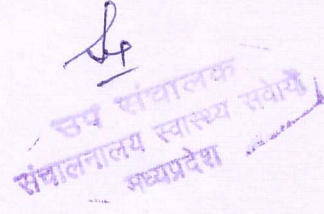 उप संचालक
संचालनालय स्वास्थ्य सेवायें
मध्यप्रदेश